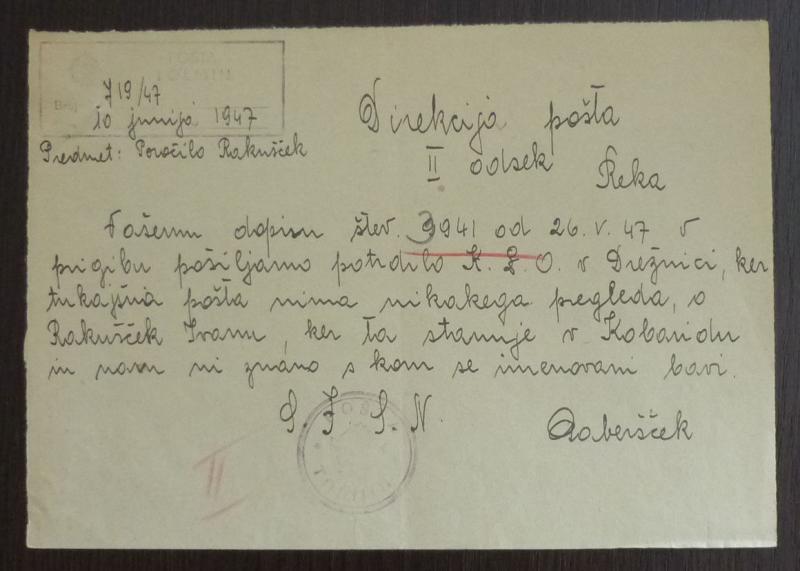 POŠTA
TOLMIN
Broj 719/47
10 junija 1947
Predmet: Poročilo Rakušček
Direkcija pošta
II odsek Reka
Vašemu dopisu štev. 3941 od 26. V. 47 v
prigibu pošiljamo potrdilo K. L. O. v Drežnici, ker
tukajšna pošta nima nikakega pregleda, o
Rakušček Ivanu, ker ta stanuje v Kobaridu
in nam ni znano s kom se imenovani bavi.
S. F. S. N.
POŠTA
TOLMIN
II